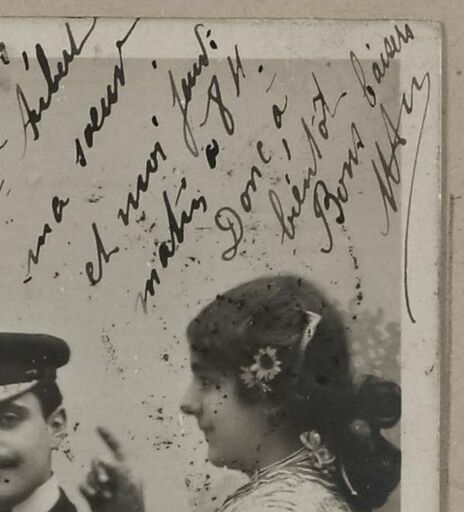 Aubert
ma soeur
et moi jeudi
matin à 8 H.
Donc à
bientôt
Bons baisers